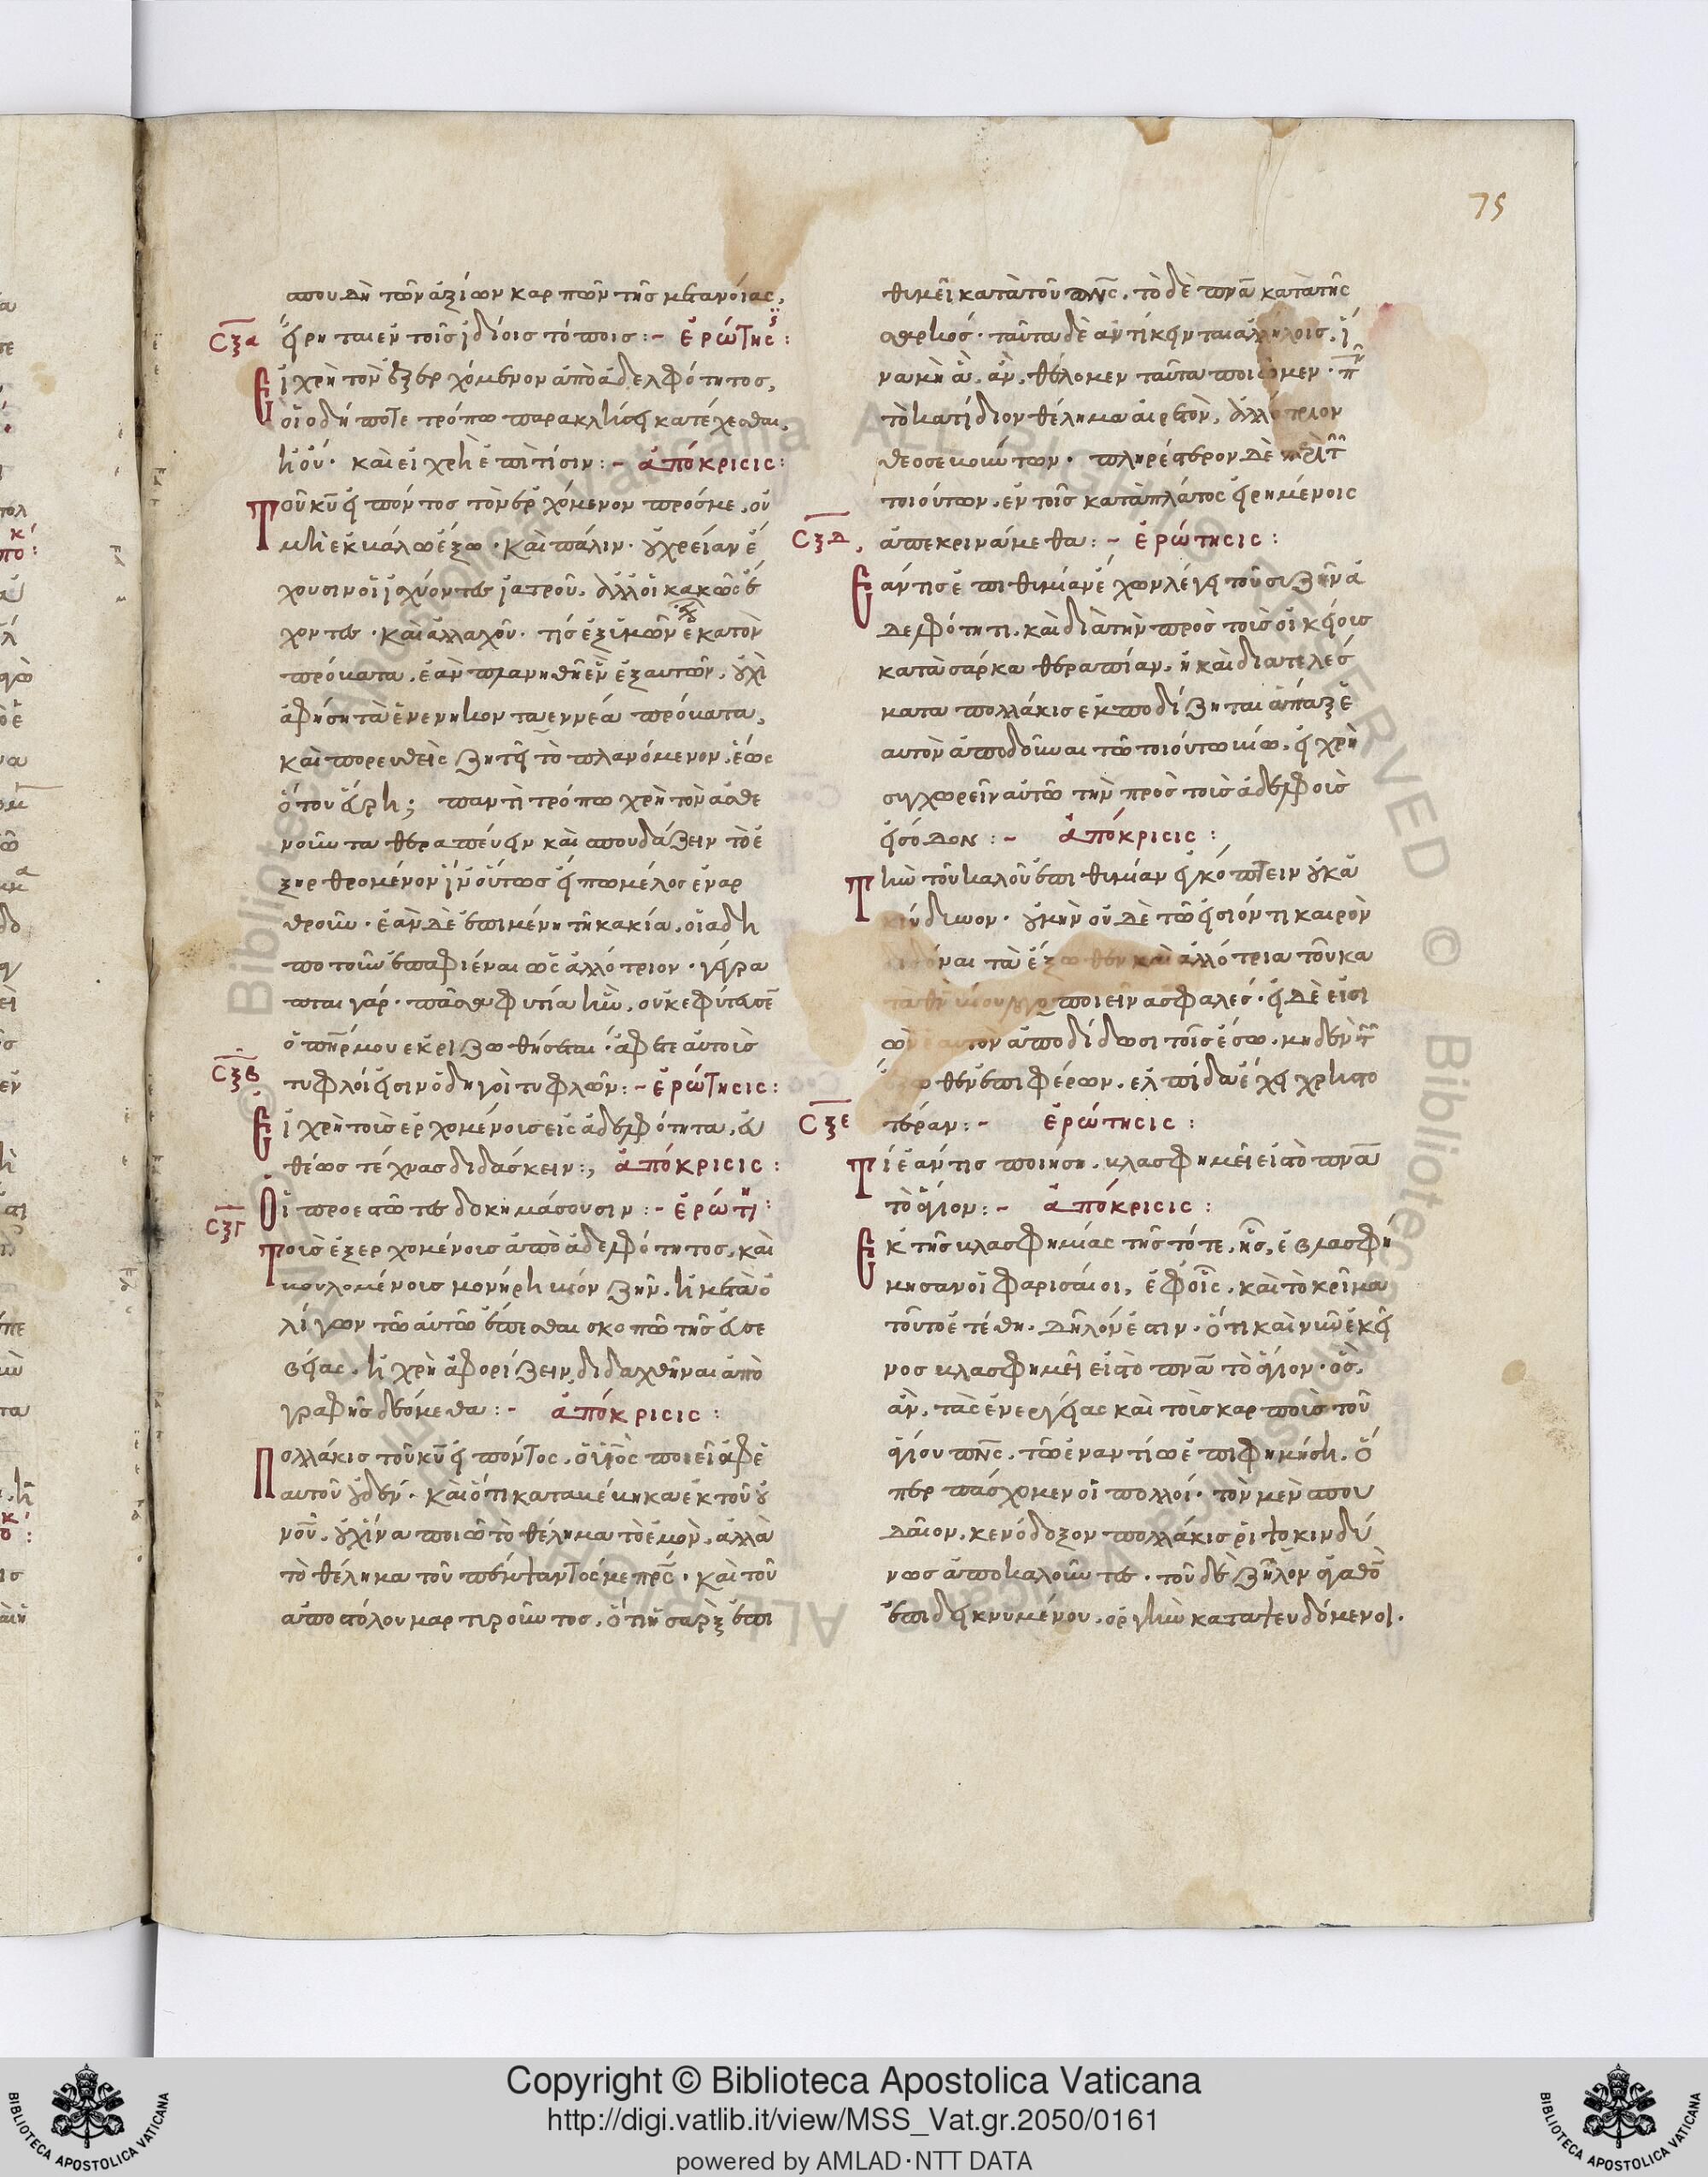 75
σπουδὴ τῶν ἀξίων καρπῶν τῆς μετανοίας,
ϲξα εἴρηται ἐν τοῖς ἰδίοις τόποις :- ἐρώτησ:
Εἰ χρὴ τὸν ἐξερχόμενον ἀπὸ ἀδελφότητος,
οἱοδήποτε τρόπω παρακλήσει κατέχεσθαι,
ἢ οὔ· καὶ εἰ χρὴ ἐπὶ τίσιν :- ἀπόκρισις:
Τοῦ κυ εἰπόντος τὸν ἐρχόμενον πρός με, οὐ
μὴ ἐκβάλω ἔξω· καὶ πάλιν· οὐ χρείαν ἔ
χουσιν οἱ ἰσχύοντες ἰατροῦ, ἀλλ' οἱ κακῶς ἔ
χοντες· καὶ ἀλλαχοῦ· τίς ἐξ ὑμῶν ἑκατὸν
πρόβατα, ἐὰν πλανηθῆ ἓν ἐξ αυτῶν, οὐχὶ
ἀφήση τὰ ἐνενηκονταεννέα πρόβατα,
καὶ πορευθεὶς ζητεῖ τὸ πλανόμενον, ἕως
ὅτου εὕρη; παντὶ τρόπω χρὴ τὸν ἀσθε
νοῦντα θεραπεύειν καὶ σπουδάζειν τὸ ἐ
ξηρθρομένον ἵν' οὕτως εἴπω μέλος ἐναρ
θροῦν· ἐὰν δὲ ἐπιμένη τῆ κακία, οἱαδη
ποτοῦν ἐπαφιέναι ὡς ἀλλότριον· γέγρα
πται γάρ· πᾶσα φυτία ἣν, οὐκ εφύτευσεν
ὁ πηρ μου εκριζωθήσεται· ἄφετε αὐτοὺς
ϲξβ τυφλοί εἰσιν ὁδηγοὶ τυφλῶν :- ἐρώτησις:
Εἰ χρὴ τοὺς ερχομένους εἰς ἀδελφότητα, εὐ
θέως τέχνας διδάσκειν :, ἀπόκρισις:
Οἱ προεστῶτες δοκημάσουσιν :- ἐρώτη:
ϲξγ Τοῖς ἐξερχομένοις ἀπὸ ἀδελφότητος, καὶ
βουλομένοις μονήρη βίον ζῆν, ἢ μετὰ ὀ
λίγων τῶ αὐτῶ ἕπεσθαι σκοπῶ τῆς εὐσε
βείας, ἢ χρὴ ἀφορίζειν, διδαχθῆναι ἀπὸ
γραφῆς δεόμεθα :- ἀπόκρισις:
Πολλάκις τοῦ κυ εἰπόντος, ὁ υἱὸς ποιεῖ ἀφ' ἑ
αυτοῦ οὐδέν· καὶ ὅτι καταβέβηκα ἐκ τοῦ οὐ
νοῦ, οὐχ ἵνα ποιῶ τὸ θέλημα τὸ ἐμὸν, ἀλλὰ
τὸ θέλημα τοῦ πέμψαντός με πρς· καὶ τοῦ
ἀποστόλου μαρτυροῦντος, ὅτι ἡ σαρξ ἐπι
θυμεῖ κατὰ τοῦ πνς, τὸ δὲ πνα κατὰ τῆς
σαρκός· ταῦτα δὲ ἀντίκειται ἀλλήλοις, ἵ
να μὴ ἃ, ἂν, θέλομεν ταῦτα ποιῶμεν· πᾶν
τὸ κατ' ἴδιον θέλημα αἱρετὸν, ἀλλότριον
θεοσεβούντων· πληρέστερον δὲ περὶ τῶν
τοιούτων, ἐν τοῖς κατὰ πλάτος εἰρημένοις
ϲξδ ἀπεκρινάμεθα :- ἐρώτησις:
Ἐάν τις ἐπιθυμίαν ἔχων λέγει τοῦ συζῆν ἀ
δελφότητι, καὶ διὰ τὴν πρὸς τοὺς οἰκείους
κατὰ σάρκα θεραπίαν, ἢ καὶ διὰ τελέσ
ματα πολλάκις ἐμποδίζηται ἁπαξ ἑ
αυτὸν ἀποδοῦναι τῶ τοιούτω βίω, εἰ χρὴ
συγχωρεῖν αὐτῶ τὴν πρὸς τοὺς ἀδελφοὺς
εἴσοδον :- ἀπόκρισις:
Τὴν τοῦ καλοῦ ἐπιθυμίαν ἐγκόπτειν οὐκ ἀ
κίνδυνον· οὐ μὴν οὐδὲ τῶ εἰσιόντι καιρὸν
διδόναι τὰ ἔξωθεν καὶ ἀλλότρια τοῦ κα
τὰ θν βίου ποιεῖν ἀσφαλές· εἰ δὲ εἰσι
ὼν ἑαυτὸν ἀποδίδωσι τοῖς ἔσω, μηδὲν τῶν
ἔξωθεν ἐπιφέρων, ἐλπίδα ἔχει χρηστο
ϲξε τέραν :- ἐρώτησις:
Τί ἐάν τις ποιήση, βλασφημεῖ εἰς τὸ πνα
τὸ ἅγιον :- ἀπόκρισις:
Ἐκ τῆς βλασφημίας τῆς τότε, ἧς, ἐβλασφή
μησαν οἱ φαρισαῖοι, ἐφ' οἷς, καὶ τὸ κρῖμα
τοῦτο ἐτέθη, δῆλόν ἐστιν· ὅτι καὶ νῦν ἐκεῖ
νος βλασφημεῖ εἰς τὸ πνα τὸ ἅγιον· ὃς,
ἂν, τὰς ἐνεργείας καὶ τοὺς καρποὺς τοῦ
ἁγίου πνς, τῶ ἐναντίω ἐπιφημήση, ὅ
περ πάσχομεν οἱ πολλοί· τὸν μὲν σπου
δαῖον, κενόδοξον πολλάκις ῥιψοκινδύ
νως ἀποκαλοῦντες· τοῦ δὲ ζῆλον ἀγαθὸν
ἐπιδεικνυμένου, ὀργὴν καταψευδόμενοι.
Copyright © Biblioteca Apostolica Vaticana
http://digi.vatlib.it/view/MSS_Vat.gr.2050/0161
powered by AMLAD·NTT DATA
BIBLIOTECA APOSTOLICA VATICANA
BIBLIOTECA APOSTOLICA VATICANA